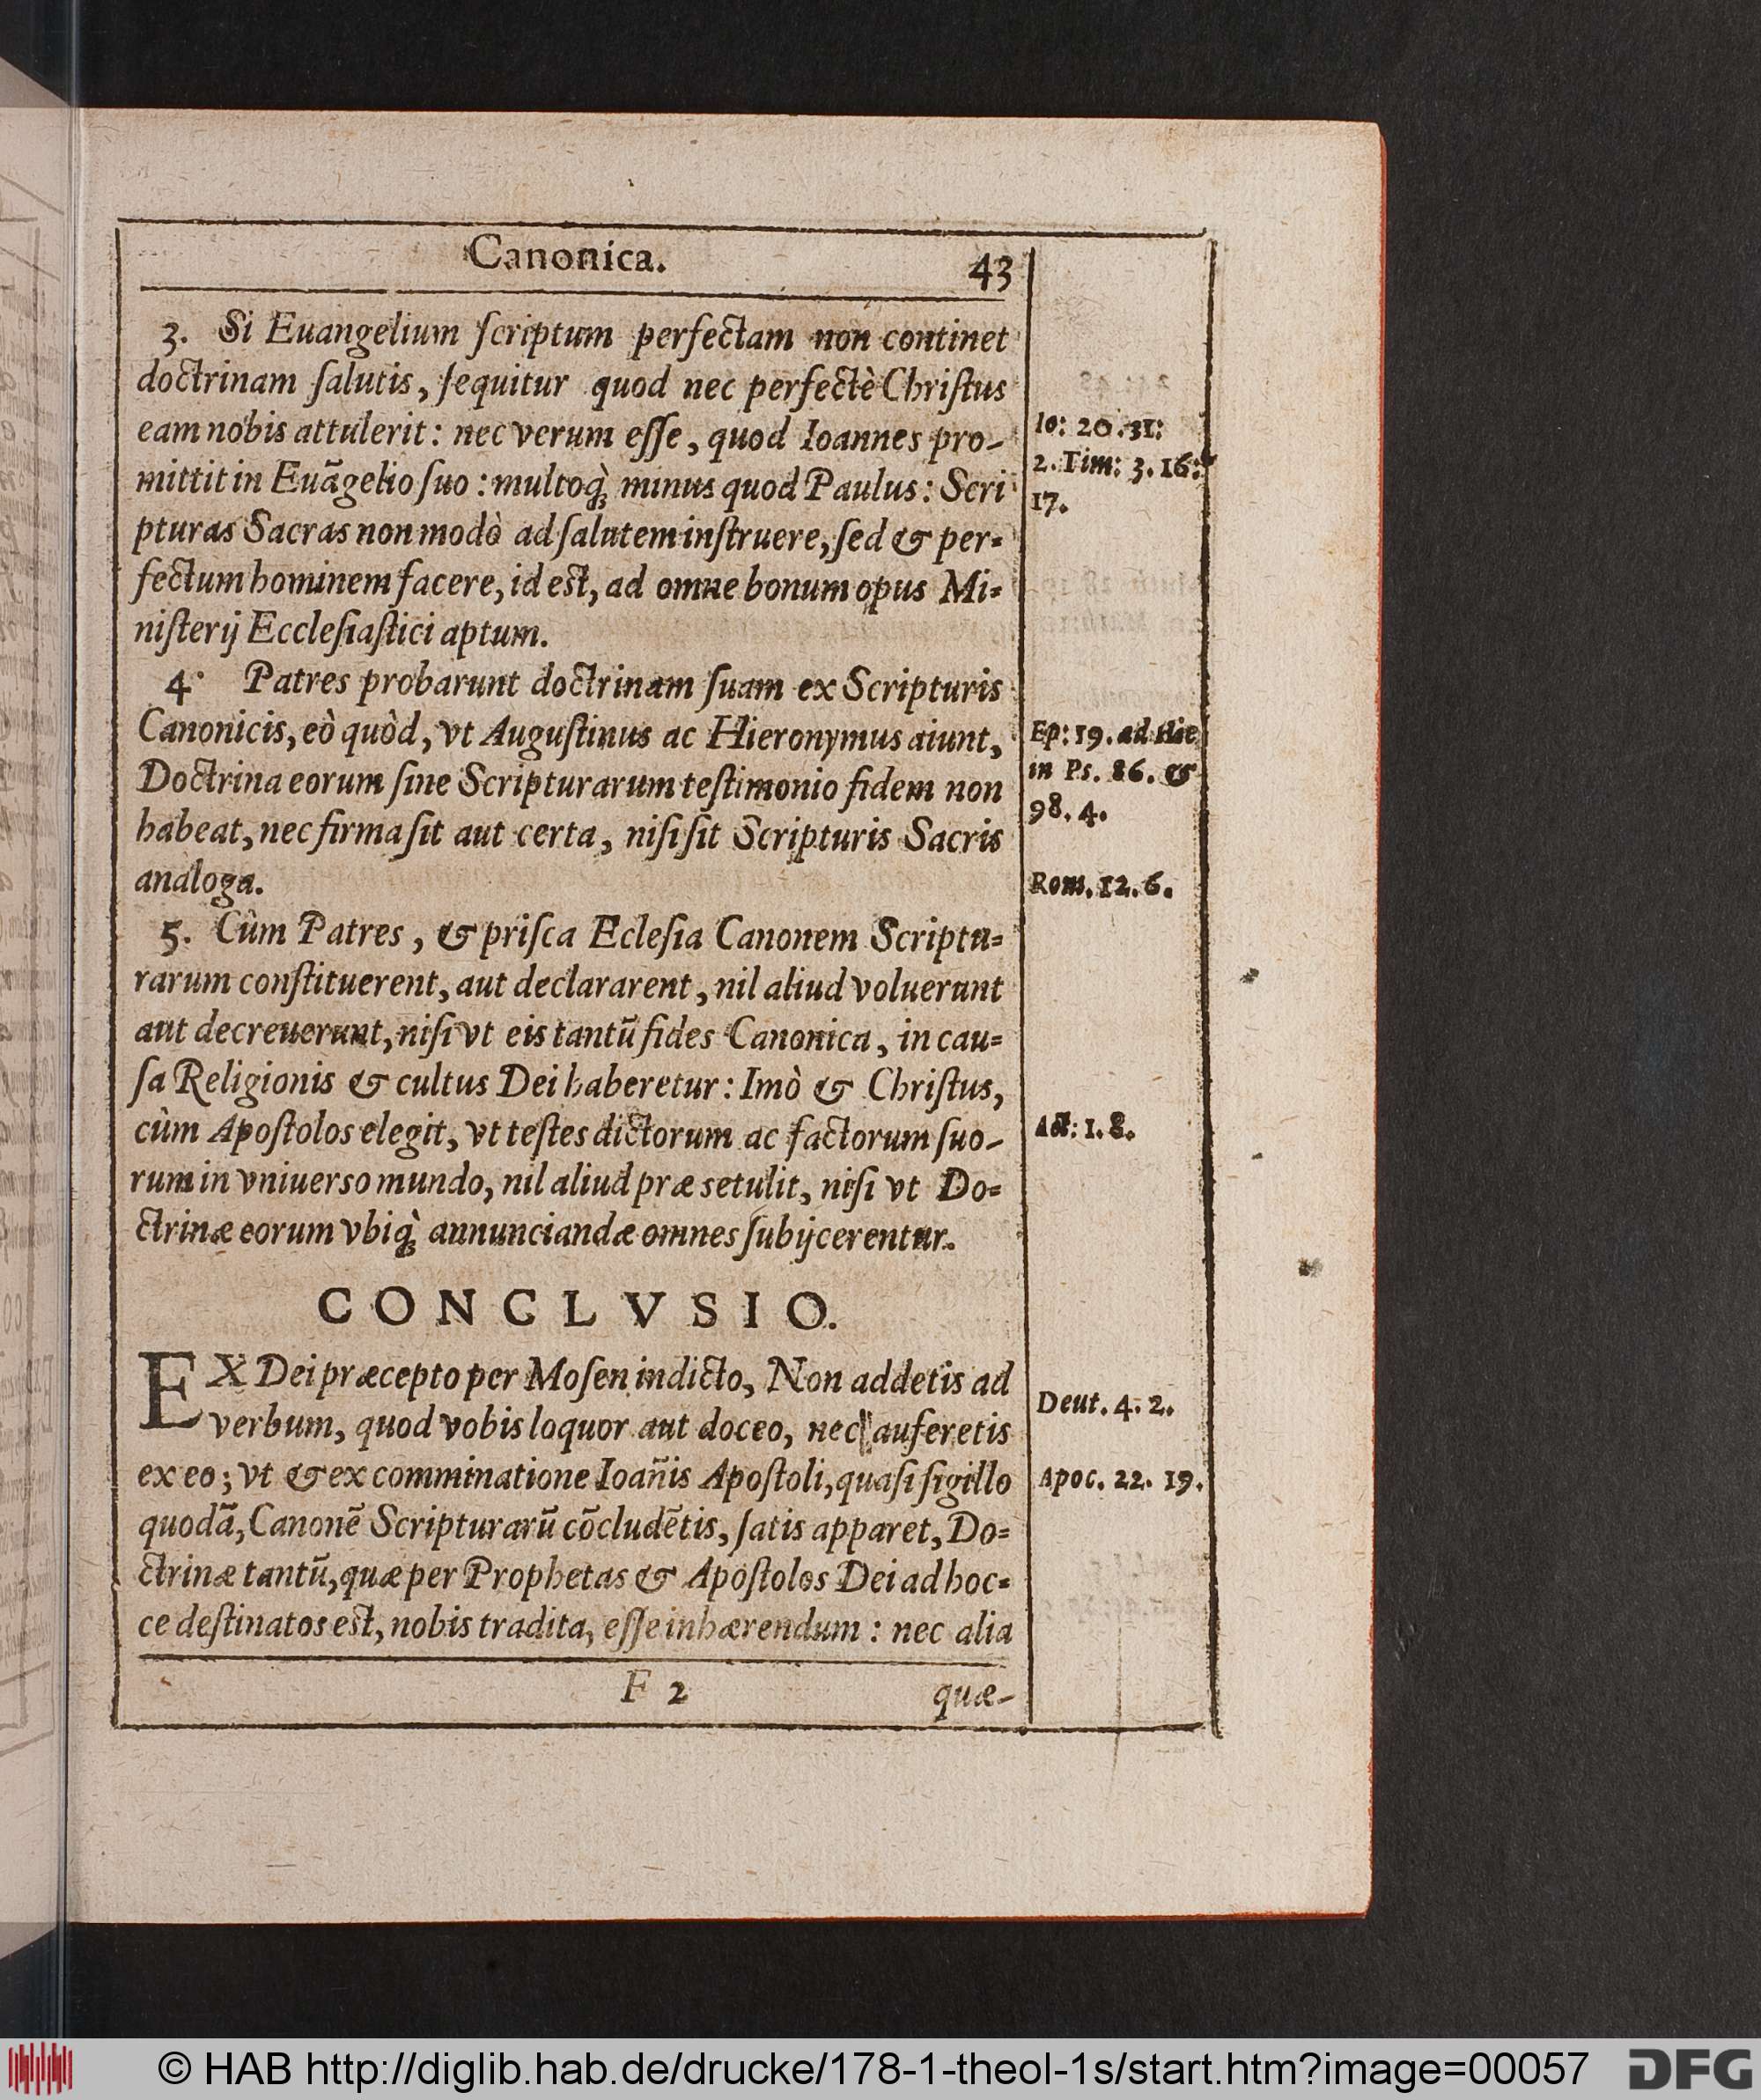 Canonica. 43
3. Si Euangelium ſcriptum perfectam non continet
doctrinam ſalutis, ſequitur quod nec perfectè Chriſtus
eam nobis attulerit: nec verum eſſe, quod Ioannes pro-
mittit in Euãgelio ſuo: multoq́ꝫ minus quod Paulus: Scri
pturas Sacras non modò ad ſalutem inſtruere, ſed & per-
fectum hominem facere, id est, ad omne bonum opus Mi-
niſterij Eccleſiaſtici aptum.
4. Patres probarunt doctrinam ſuam ex Scripturis
Canonicis, eò quòd, vt Auguſtinus ac Hieronymus aiunt,
Doctrina eorum ſine Scripturarum teſtimonio fidem non
habeat, nec firma ſit aut certa, niſi ſit Scripturis Sacris
analoga.
5. Cùm Patres, & priſca Ecleſia Canonem Scriptu-
rarum conſtituerent, aut declararent, nil aliud voluerunt
aut decreuerunt, niſi vt eis tantũ fides Canonica, in cau-
ſa Religionis & cultus Dei haberetur: Imò & Chriſtus,
cùm Apoſtolos elegit, vt teſtes dictorum ac factorum ſuo-
rum in vniuerso mundo, nil aliud præ se tulit, niſi vt Do-
ctrinæ eorum vbiq́ꝫ annunciandæ omnes ſubijcerentur.
CONCLVSIO.
EX Dei præcepto per Moſen indicto, Non addetis ad
verbum, quod vobis loquor aut doceo, nec auferetis
ex eo; vt & ex comminatione Ioan̄is Apoſtoli, quaſi ſigillo
quodã, Canonẽ Scripturarũ cõcludẽtis, ſatis apparet, Do-
ctrinæ tantũ, quæ per Prophetas & Apoſtolos Dei ad hoc-
ce deſtinatos est, nobis tradita, eſſe inhærendum: nec alia
F 2 quæ-
Io: 20.31:
2. Tim: 3.16:
17.
Ep: 19. ad Hie
in Ps. 86. &
98. 4.
Rom. 12. 6.
Act: 1. 8.
Deut. 4. 2.
Apoc. 22. 19.
© HAB http://diglib.hab.de/drucke/178-1-theol-1s/start.htm?image=00057
DFG